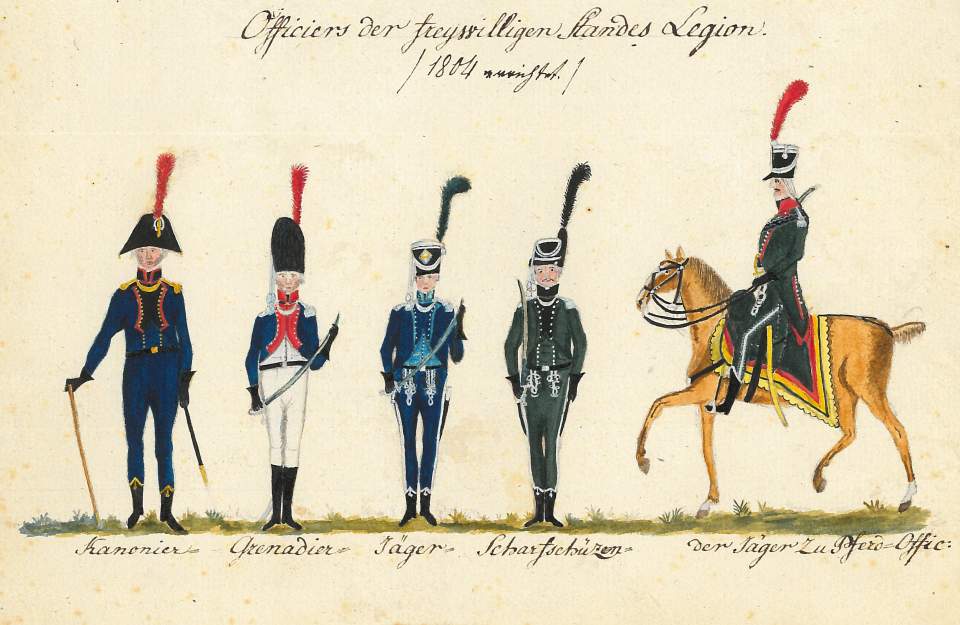 Officiers der freywilligen Standes Legion.
/ 1804 errichtet. /
Kanonier= Grenadier= Jäger= Scharfschüzen= der Jäger Zu Pferd=Offic: